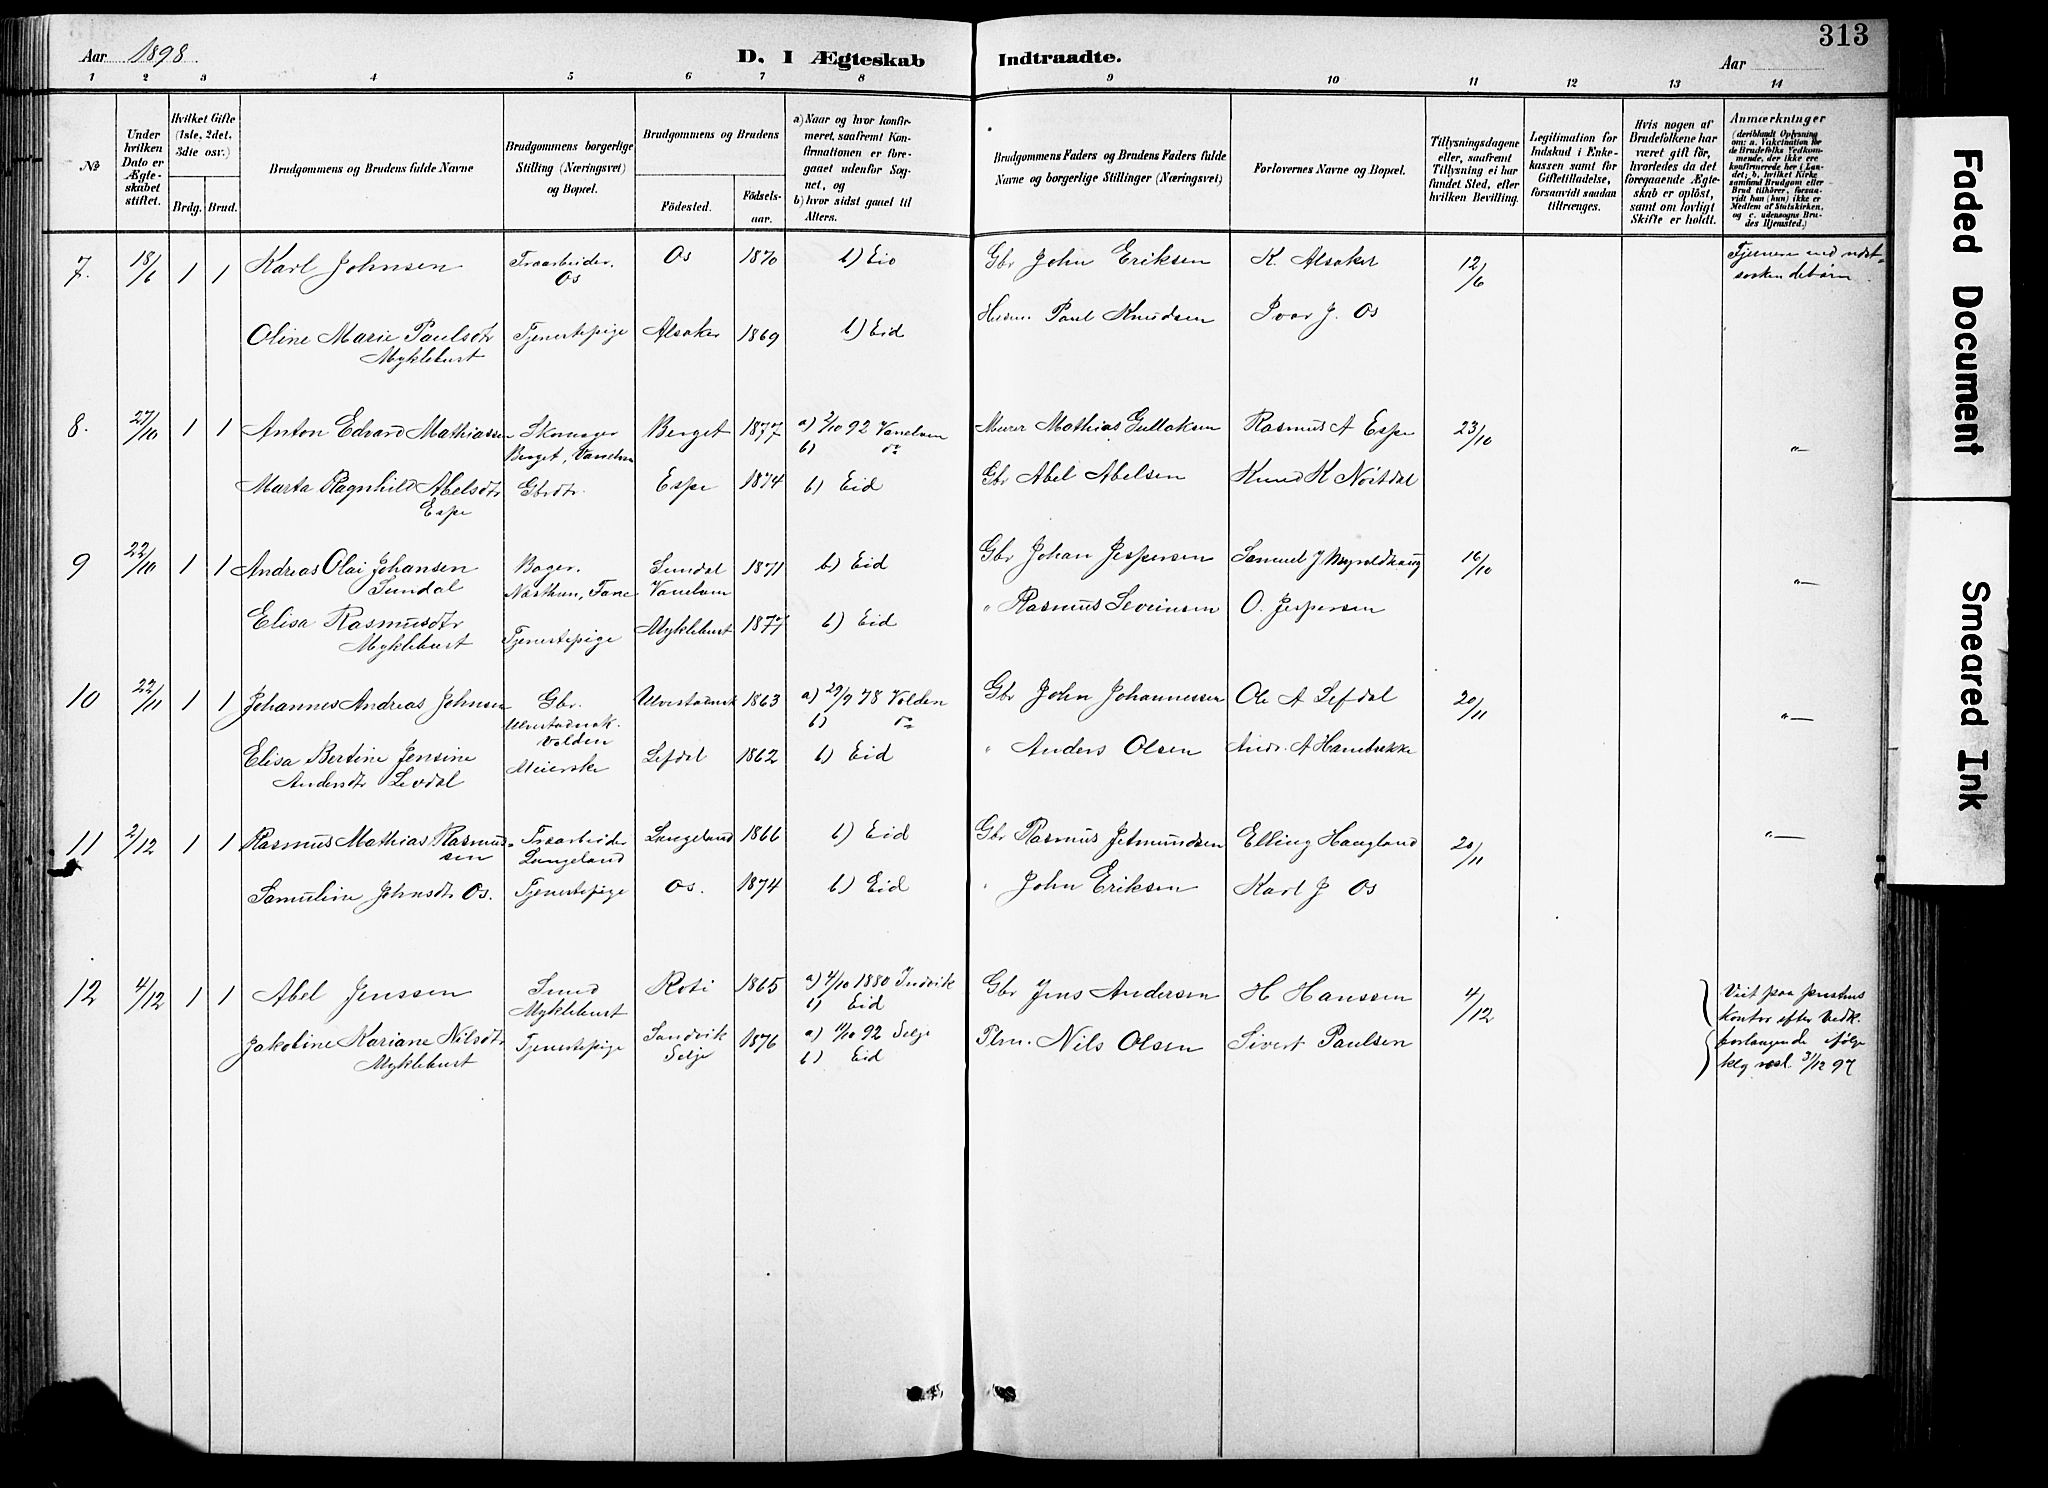 313
Aar 1898.
D. I Ægteskab Indtraadte.
Aar
1 2 3 4 5 6 7 8 9 10 11 12 13 14
№
Under hvilken Dato er Ægteskabet stiftet.
Hvilket Gifte (1ste, 2det, 3die osv.)
Brdg. Brud.
Brudgommens og Brudens fulde Navne
Brudgommens borgerlige Stilling (Næringsvei) og Bopæl.
Brudgommens og Brudens
Fødested.
Fødselsaar.
a) Naar og hvor konfirmeret, saafremt Konfirmationen er foregaaet udenfor Sognet, og
b) hvor sidst gaaet til Alters.
Brudgommens Faders og Brudens Faders fulde Navne og borgerlige Stillinger (Næringsvei)
Forlovernes Navne og Bopæl.
Tillysningsdagene eller, saafremt Tillysning ei har fundet Sted, efter hvilken Bevilling.
Legitimation for Indskud i Enkekassen samt for Giftetilladelse, forsaavidt saadan tiltrænges.
Hvis nogen af Brudefolkene har været gift før, hvorledes da det foregaaende Ægteskab er opløst, samt om lovligt Skifte er holdt.
Anmærkninger
(deriblandt Oplysning om: a. Vakcination for de Brudefolks Vedkommende, der ikke ere konfirmerede her i Landet; b. hvilket Kirkesamfund Brudgom eller Brud tilhører, forsaavidt han (hun) ikke er Medlem af Statskirken, og c. udensogns Brudes Hjemsted.)
7. 18/6 1 1 Karl Johnsen Træarbeider. Os Os 1870 b) Eid Gbr John Eriksen K. Alsaker 12/6
Oline Marie Paulsdtr Myklebust Tjenestepige Alsaker 1869 b) Eid Husm. Paul Knudsen Ivar J. Os
8. 27/10 1 1 Anton Edvard Mathiassen Skomager Berget, Vanelven Berget 1877 a) 2/10 92 Vanelven b) do Murer Mathias Gullaksen Rasmus A Espe 23/10 "—
Marta Ragnhild Abelsdtr Espe Gbrdtr. Espe 1874 b) Eid Gbr Abel Abelsen Knud K Nøstdal
9 22/10 1 1 Andreas Olai Johansen Sundal Bager. Næsthun, Fane Sundal Vanelven 1871 b) Eid Gbr Johan Jespersen Samuel J Myroldhaug 16/10 "—
Elisa Rasmusdtr Myklebust Tjenestepige Myklebust 1877 b) Eid " Rasmus Severinsen O. Jespersen
10 22/11 1 1 Johannes Andreas Johnsen Gbr. Ulvestadvik. Volden Ulvestadvik 1863 a) 29/9 78 Volden b) do Gbr John Johannessen Ole A Lefdal 20/11 "—
Elisa Bertine Jensine Andersdtr Levdal Meierske Lefdal 1862 b) Eid " Anders Olsen Andr. A Hanebrekke
11 2/12 1 1 Rasmus Mathias Rasmussen Træarbeider Langeland Langeland 1866 b) Eid Gbr Rasmus Jetmundsen Elling Haugland 20/11 "—
Samuline Johnsdtr Os. Tjenestepige Os. 1874 b) Eid " John Eriksen Karl J Os
12 4/12 1 1 Abel Jenssen Smed Myklebust Roti 1865 a) 4/10 1880 Indvik b) Eid Gbr Jens Andersen H Hanssen 4/12 Viet paa prestens kontor efter Vedk. forlangende ifølge klg resl. 31/12 97
Jakobine Kariane Nilsdtr Myklebust Tjenestepige Sandvik Selje 1876 a) 11/10 92 Selje b) Eid Plm. Nils Olsen Sivert Paulsen
Faded Document
Smeared Ink